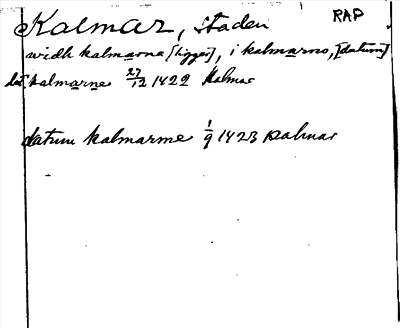 Kalmar, staden
RAP
widh kalmarna [ligger], i kalmarno, [datum]
kalmarne 27/12 1422 Kalmar
datum kalmarme 1/9 1423 Kalmar